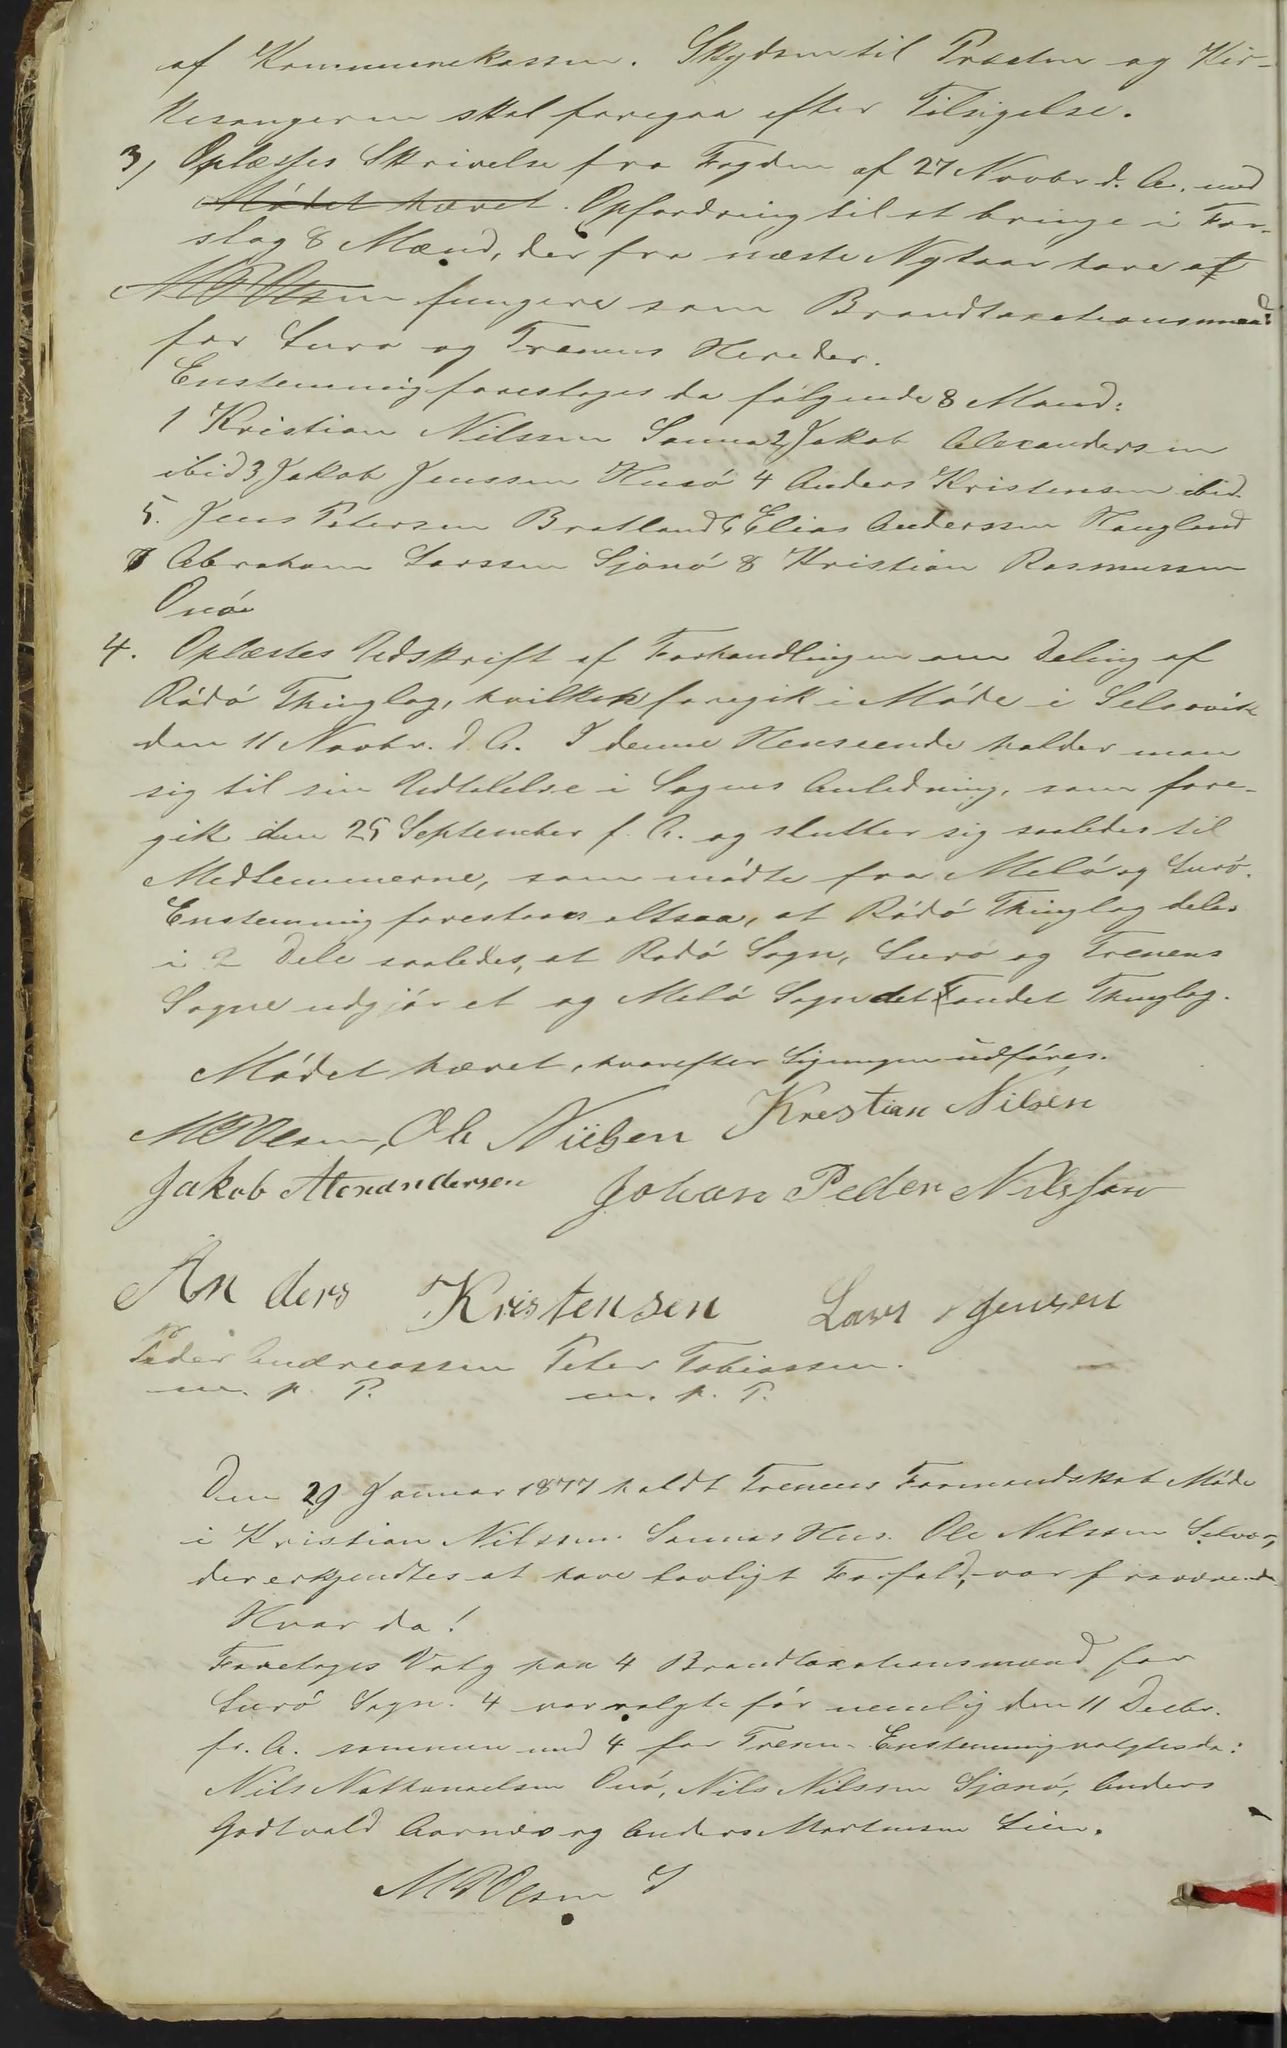 af Kommunekassen. Skydsen til Præsten og Kir-
kesangeren skal foregaa efter Tilsigelse.
3, Oplæstes Skrivelse fra Fogden af 27 Novbr d. A. med
Mødet hævet. Opfordring til at bringe i For-
slag 8 Mænd, der fra næste Nytaar have at
M P Olsen fungere som Brandtaxationsmænd
for Lurø og Trænens Hereder.
Enstemmig foresloges da følgende 8 Mænd:
1 Kristian Nilssen Sanna 2, Jakob Alexandersen
ibid 3 Jakob Jenssen Husø 4 Anders Kristensen ibid.
5. Jens Petersen Bratland 6 Elias Anderssen Haugland
7 Abraham Larssen Sjonø 8 Kristian Rasmussen
Onø
4. Oplæstes Udskrift af Forhandlingen om Deling af
Rødø Thinglag, hvilken foregik i Møde i Selsøvik
den 11 Novbr. d. A. I denne Henseende holder man
sig til sin Udtalelse i Sagens Anledning, som fore-
gik den 25 September f. A. og slutter sig saaledes til
Medlemmerne, som mødte fra Melø og Lurø.
Enstemmig forestaaes altsaa, at Rødø Thinglag deles
i 2 Dele saaledes, at Rødø Sogn, Lurø og Trenens
Sogne udgjør et og Melø Sogn det andet Thinglag.
Mødet hævet, hvorefter Ligningen udføres.
M P Olsen, Ole Nilsen Krestian Nilsen
Jakob Alexandersen Johan Peder Nilssen
An ders Kristensen Lars Jensen
Peder Andreassen Peter Tobiassen.
m. p. P. m. p. P.
Den 29 Januar 1877 holdt Trenens Formandskab Møde
i Kristian Nilssens Sannas Hus. Ole Nilssen Selvær,
der erkjendtes at have lovligt Forfald, var fraværende
Hvor da!
Foretoges Valg paa 4 Brandtaxationsmænd for
Lurø Sogn. 4 var valgte før nemlig den 11 Decbr.
fr. A. sammen med 4 for Trenen. Enstemmig valgtes da:
Nils Nathanaelsen Onø, Nils Nilssen Sjonø, Anders
Godtvald Aarnes og Anders Mortensen Lien.
M P Olsen